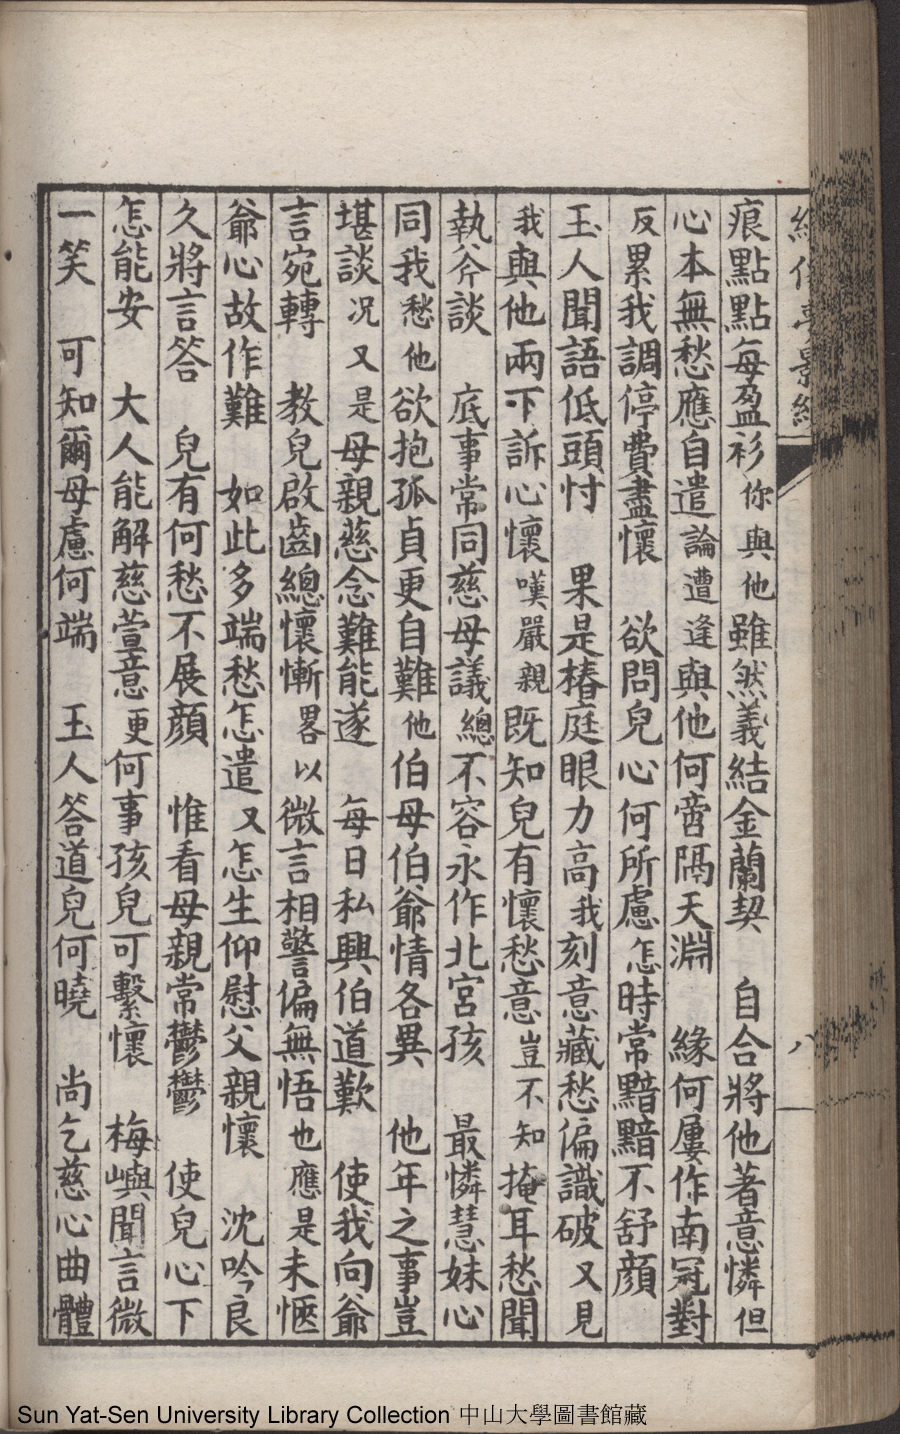 痕點點每盈衫你與他雖然義結金蘭契　自合將他著意憐但
心本無愁應自遣論遭逢與他何啻隔天淵　緣何屢作南冠對
反累我調停費盡懷　欲問兒心何所慮怎時常黯黯不舒顔
玉人聞語低頭忖　果是椿庭眼力高我刻意藏愁偏識破又見
我與他兩下訴心懷嘆嚴親既知兒有懷愁意豈不知掩耳愁聞
執斧談　底事常同慈母議總不容永作北宮孩　最憐慧妹心
同我愁他欲抱孤貞更自難他伯母伯爺情各異　他年之事豈
堪談况又是母親慈念難能遂　每日私興伯道歎　使我向爺
言宛轉　教兒啟齒總懷慚畧以微言相警偏無悟也應是未愜
爺心故作難　如此多端愁怎遣又怎生仰慰父親懷　沈吟良
久將言答　兒有何愁不展顔　惟看母親常鬱鬱　使兒心下
怎能安　大人能解慈萱意更何事孩兒可繫懷　梅嶼聞言微
一笑　可知爾母慮何端　玉人答道兒何曉　尚乞慈心曲體
八
Sun Yat-Sen University Library Collection 中山大學圖書館藏